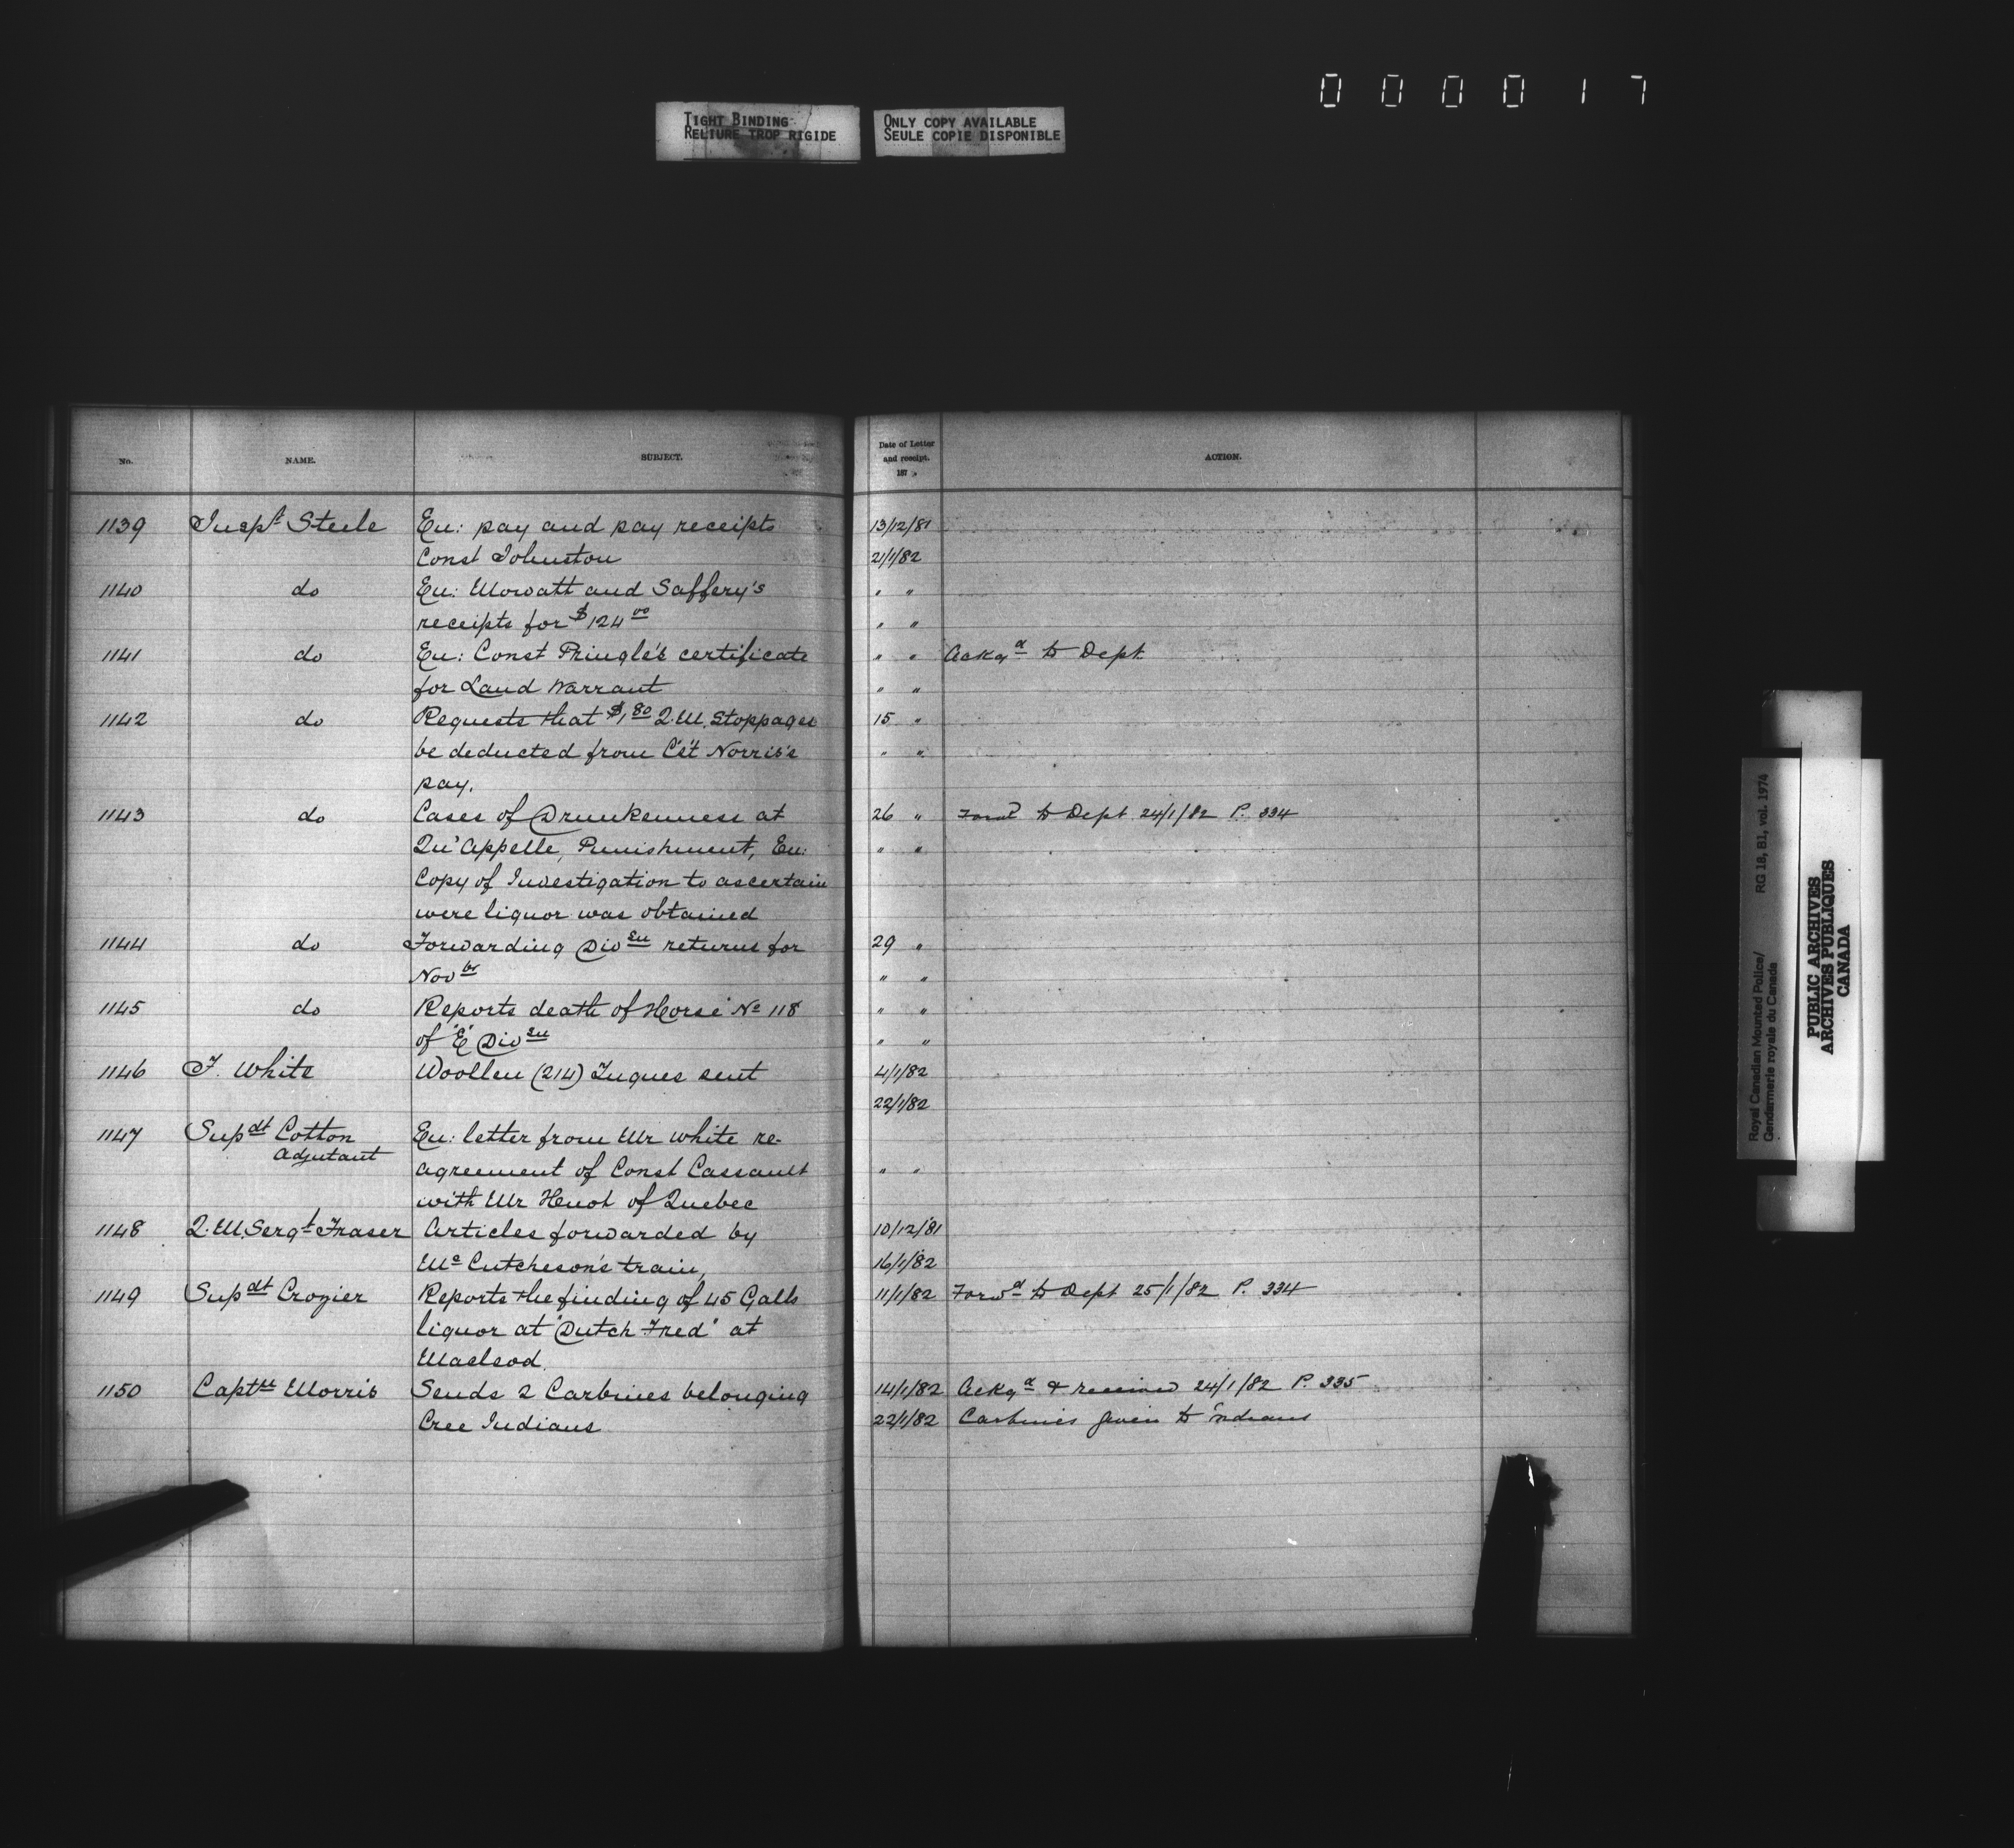 0 0 0 0 1 7
TIGHT BINDING
RELIURE TROP RIGIDE
ONLY COPY AVAILABLE
SEULE COPIE DISPONIBLE
No. NAME. SUBJECT. Date of Letter and receipt. 187 ACTION.
1139 Inspt Steele En: pay and pay receipts 13/12/81
Const Johnston 21/1/82
1140 do En: Mowatt and Saffery's " "
receipts for $124 00 " "
1141 do En: Const Pringle's certificate " " Ackgd to Dept.
for Land Warrant " "
1142 do Requests that $1,80 Q.M. Stoppages 15 "
be deducted from C'st Norris's " "
pay.
1143 do Cases of Drunkenness at 26 " Forwd to Dept 24/1/82 P. 334
Qu'Appelle, Punishment, En: " "
Copy of Investigation to ascertain
were liquor was obtained
1144 do Forwarding Divsn returns for 29 "
Novbr " "
1145 do Reports death of Horse No 118 " "
of "E" Divsn " "
1146 F. White Woollen (214) Tuques sent 4/1/82
22/1/82
1147 Supdt Cotton En: letter from Mr White re-
Adjutant
agreement of Const Cassault " "
with Mr Henot of Quebec
1148 Q.M. Sergt Fraser Articles forwarded by 10/12/81
Mc Cutcheson's train, 16/1/82
1149 Supdt Crozier Reports the finding of 45 Galls 11/1/82 Forwd to Dept 25/1/82 P. 334
liquor at "Dutch Fred" at
Macleod.
1150 Captn Morris Sends 2 Carbines belonging 14/1/82 Ackgd & received 24/1/82 P. 335
Cree Indians 22/1/82 Carbines given to indians
Royal Canadian Mounted Police/ RG 18, B1, vol. 1974
Gendarmerie royale du Canada
PUBLIC ARCHIVES
ARCHIVES PUBLIQUES
CANADA